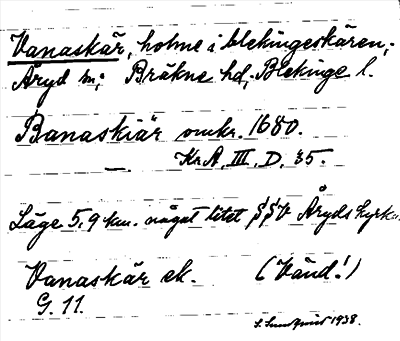 Vanaskär, holme i blekingeskären;
Åryd sn; Bräkne hd, Blekinge l.
Banaskiär omkr. 1680.
Kr.A. III, D. 35.
Läge 5,9 km. något litet SSV Åryds kyrka.
Vanaskär ek. (Vänd!)
G. 11.
1938.